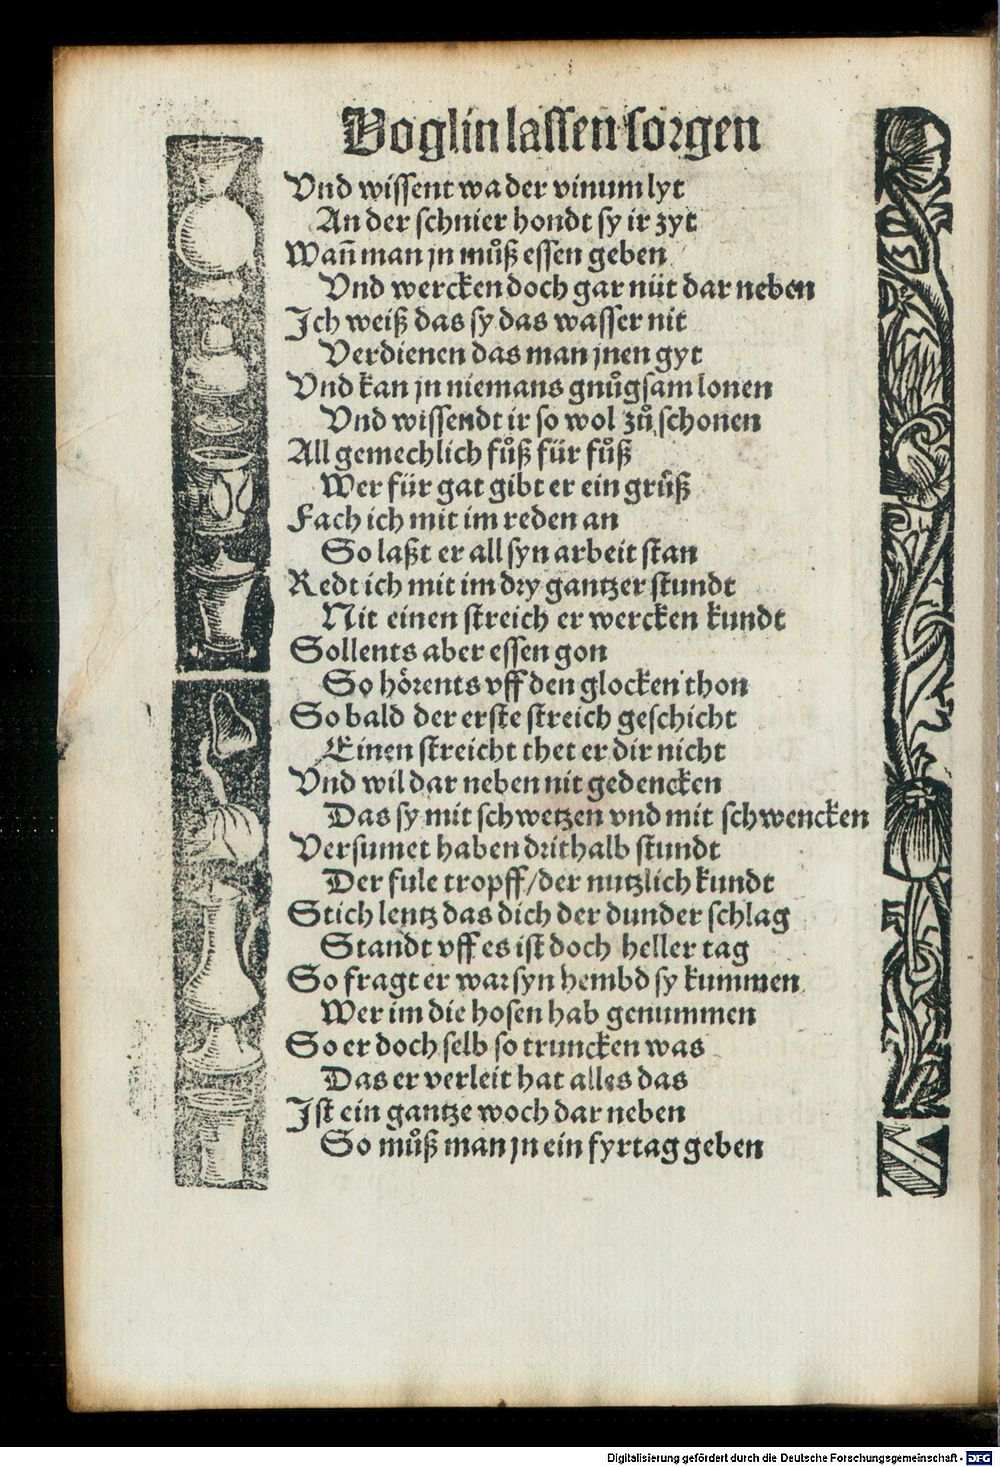 Voglin lassen sorgen
Vnd wissent wa der vinum lyt
An der schnier hondt sy ir zyt
Wañ man jn můß essen geben
Vnd wercken doch gar nüt dar neben
Ich weiß das sy das wasser nit
Verdienen das man jnen gyt
Vnd kan jn niemans gnůgsam lonen
Vnd wissendt ir so wol zů schonen
All gemechlich fůß für fůß
Wer für gat gibt er ein grůß
Fach ich mit im reden an
So laßt er all syn arbeit stan
Redt ich mit im dry gantzer stundt
Nit einen streich er wercken kundt
Sollents aber essen gon
So hörents vff den glocken thon
So bald der erste streich geschicht
Einen streicht thet er dir nicht
Vnd wil dar neben nit gedencken
Das sy mit schwetzen vnd mit schwencken
Versumet haben drithalb stundt
Der fule tropff/der nutzlich kundt
Stich lentz das dich der dunder schlag
Standt vff es ist doch heller tag
So fragt er war syn hembd sy kummen
Wer im die hosen hab genummen
So er doch selb so truncken was
Das er verleit hat alles das
Ist ein gantze woch dar neben
So můß man jn ein fyrtag geben
Digitalisierung gefördert durch die Deutsche Forschungsgemeinschaft - DFG